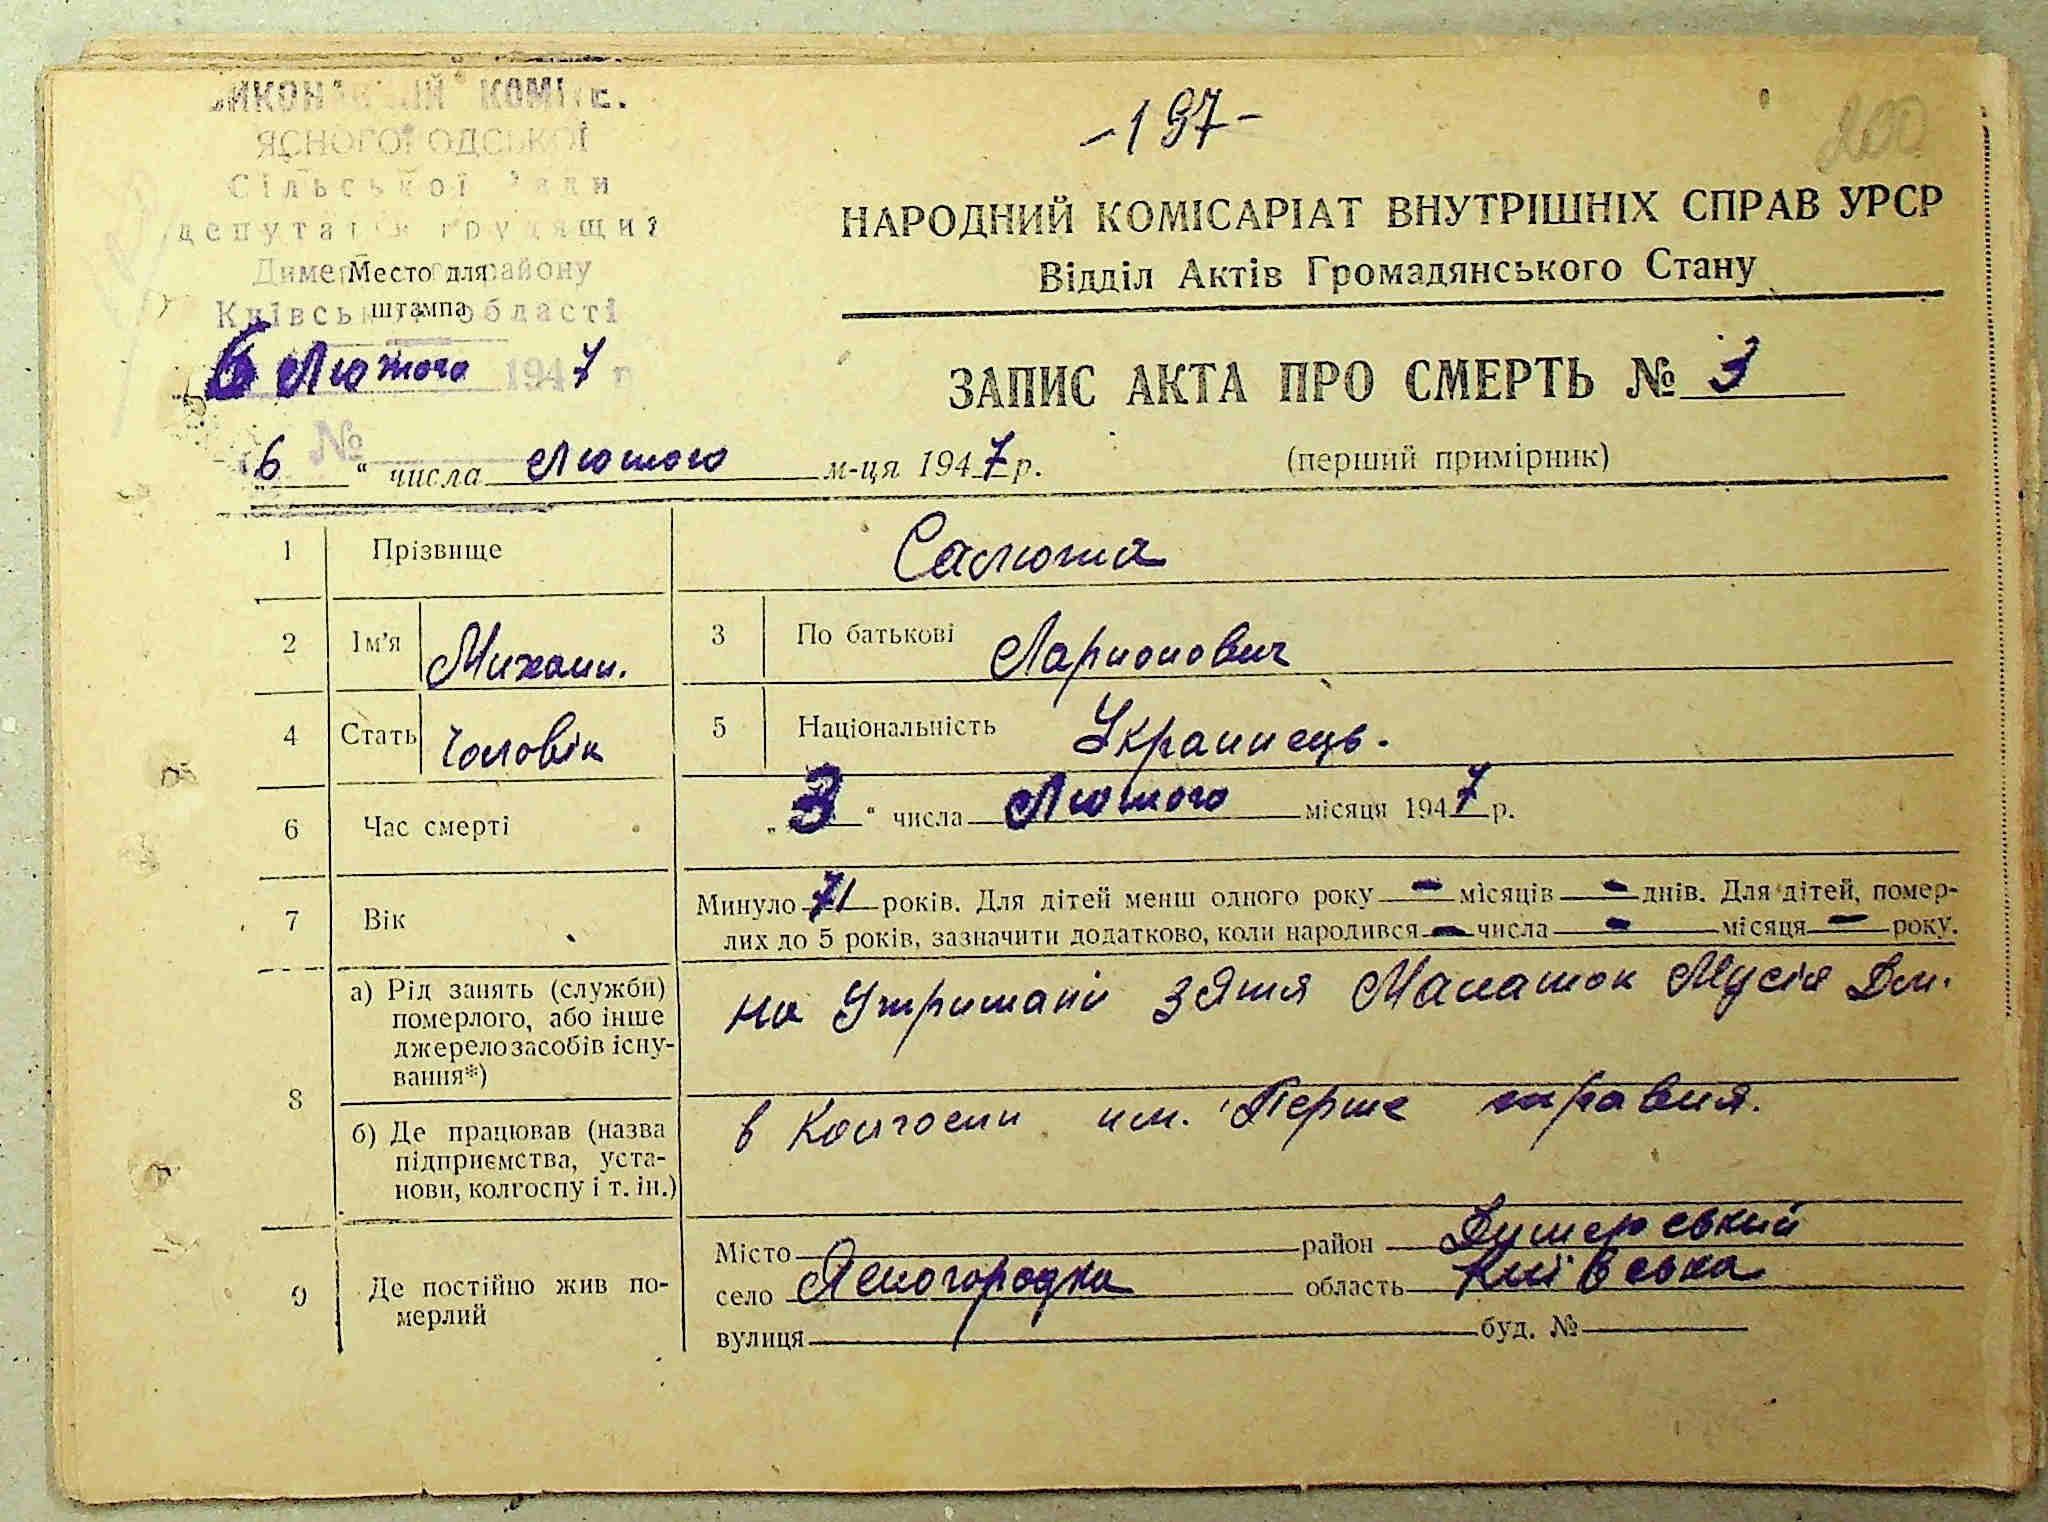 ВИКОНАВЧИЙ КОМІТЕ.
-197-
200
ЯСНОГОРОДСЬКОЇ
Сільської Ради
депутатів трудящих
НАРОДНИЙ КОМІСАРІАТ ВНУТРІШНІХ СПРАВ УРСР
Відділ Актів Громадянського Стану
Димерського району
Место для
штампа
Київської області
6 Лютого 1947 р
№
ЗАПИС АКТА ПРО СМЕРТЬ № 3
„6“ числа Лютого м-ця 1947 р.
(перший примірник)
1 Прізвище Салюта
2 Ім'я Михаил. 3 По батькові Ларионович
4 Стать Чоловік 5 Національність Украинець.
6 Час смерті „3“ числа Лютого місяця 1947 р.
7 Вік Минуло 71 років. Для дітей менш одного року - місяців - днів. Для дітей, помер-
лих до 5 років, зазначити додатково, коли народився - числа - місяця - року.
8 а) Рід занять (служби)
померлого, або інше
джерело засобів існу-
вання*)
на Утримані зятя Малаток Мусія Дм.
б) Де працював (назва
підприємства, уста-
нови, колгоспу і т. ін.)
в Колгоспи им. Перше травня.
9 Де постійно жив по-
мерлий
Місто район Димерський
село Ясногородка область Київська
вулиця буд. №